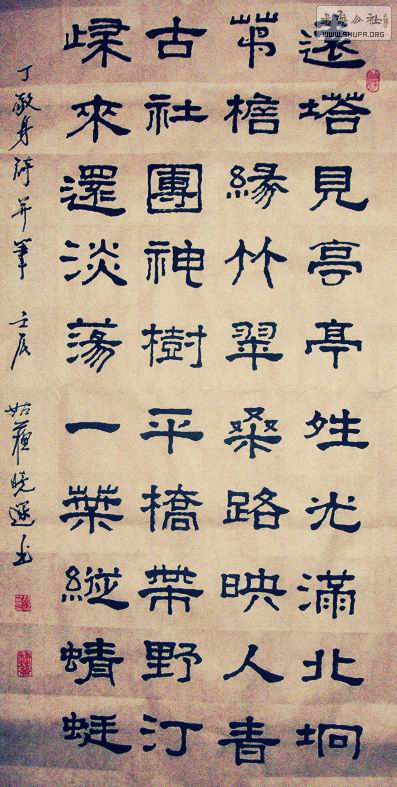 遠塔見亭亭夝光滿北坰
茆檐緣竹翠桑路映人青
古社團神樹平橋帶野汀
歸來還淡蕩一葉縱蜻蜓
丁敬身詩并筆 壬辰 姑蘇曉
WWW.SHUFA.ORG